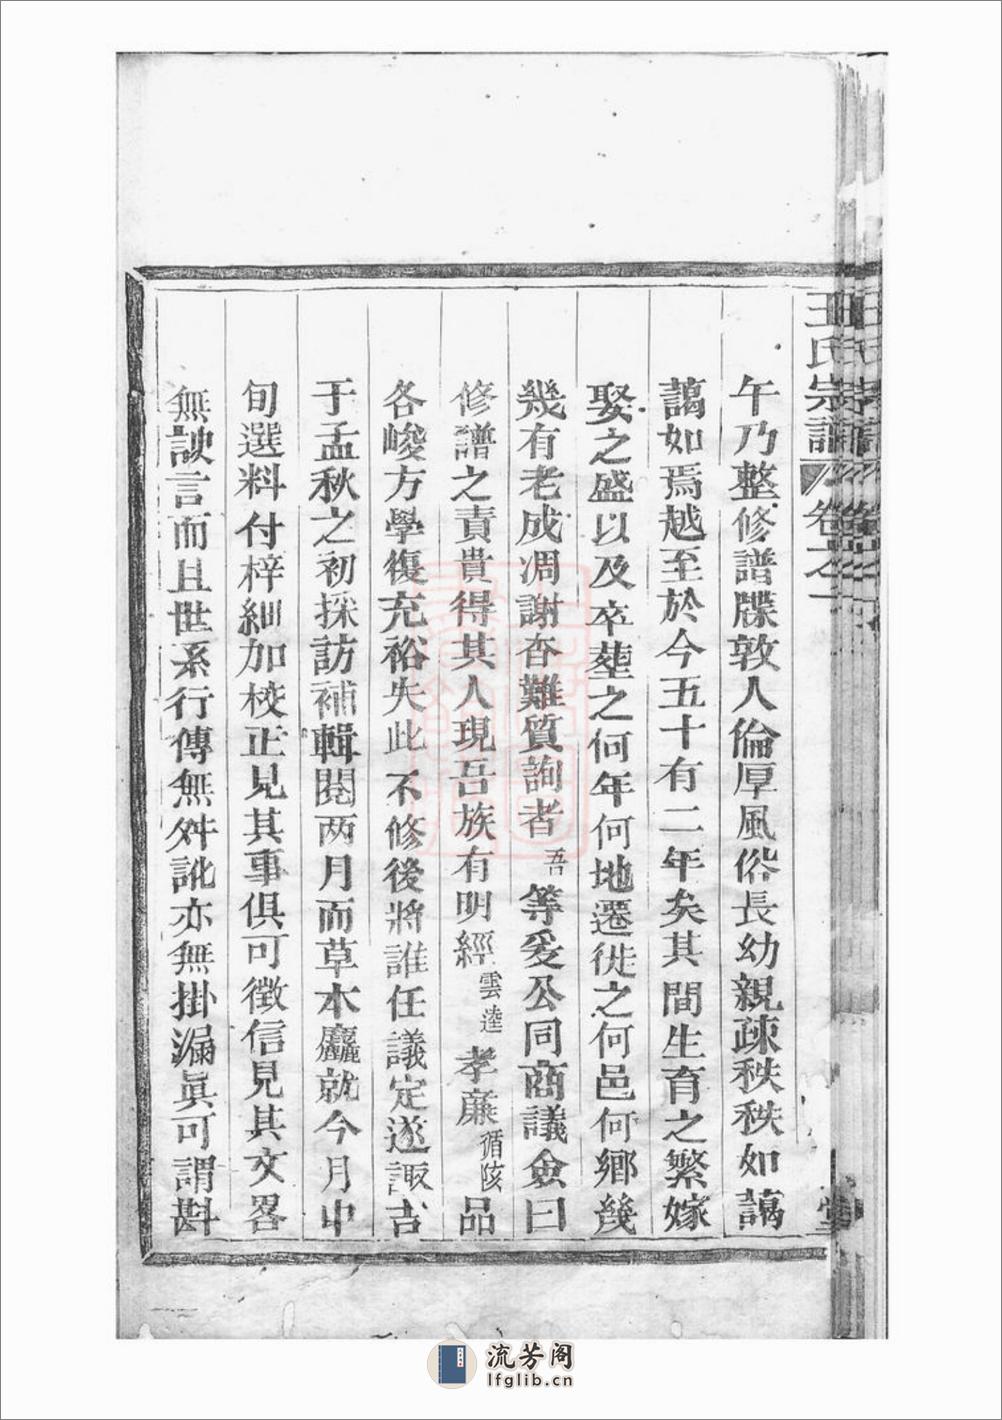 王氏宗譜 卷之一
午乃整修譜牒敦人倫厚風俗長幼親疎秩秩如藹
藹如焉越至於今五十有二年矣其間生育之繁嫁
娶之盛以及卒塟之何年何地遷徙之何邑何鄉幾
幾有老成凋謝杳難質詢者吾等爰公同商議僉曰
修譜之責貴得其人現吾族有明經雲逵孝廉循陔品
各峻方學復充裕失此不修後將誰任議定遂諏吉
于孟秋之初採訪補輯閱两月而草本麤就今月中
旬選料付梓細加校正見其事俱可徵信見其文畧
無諛言而且世系行傳無舛訛亦無掛漏眞可謂斟
流芳阁
lfglib.cn